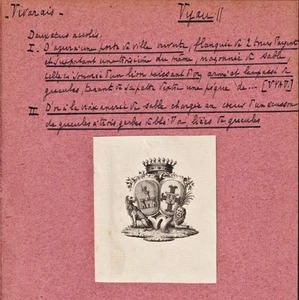 Vivarais -
Deux écus accolés.
I. D'azur à une porte de ville ouverte, flanquée de 2 tours d'argent
et supportant une troisième du même, maçonnée de sable,
celle-ci sommée d'un lion naissant d'or armé et lampassé de
gueules, tenant de sa patte dextre une pique de ...
II D'or à la croix ancrée de sable chargée en cœur d'un écusson
de gueules à trois gerbes de blé d'or, liées de gueules